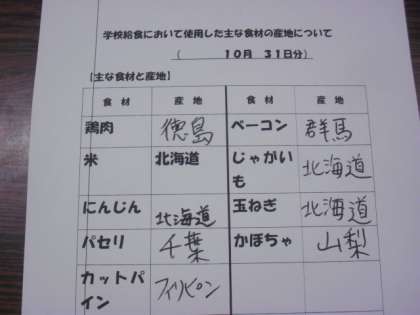 学校給食において使用した主な食材の産地について
( 10月 31日分)
【主な食材と産地】
食 材 産 地 食 材 産 地
鶏肉 徳島 ベーコン 群馬
米 北海道 じゃがい
も 北海道
にんじん 北海道 玉ねぎ 北海道
パセリ 千葉 かぼちゃ 山梨
カットパ
イン フィリピン